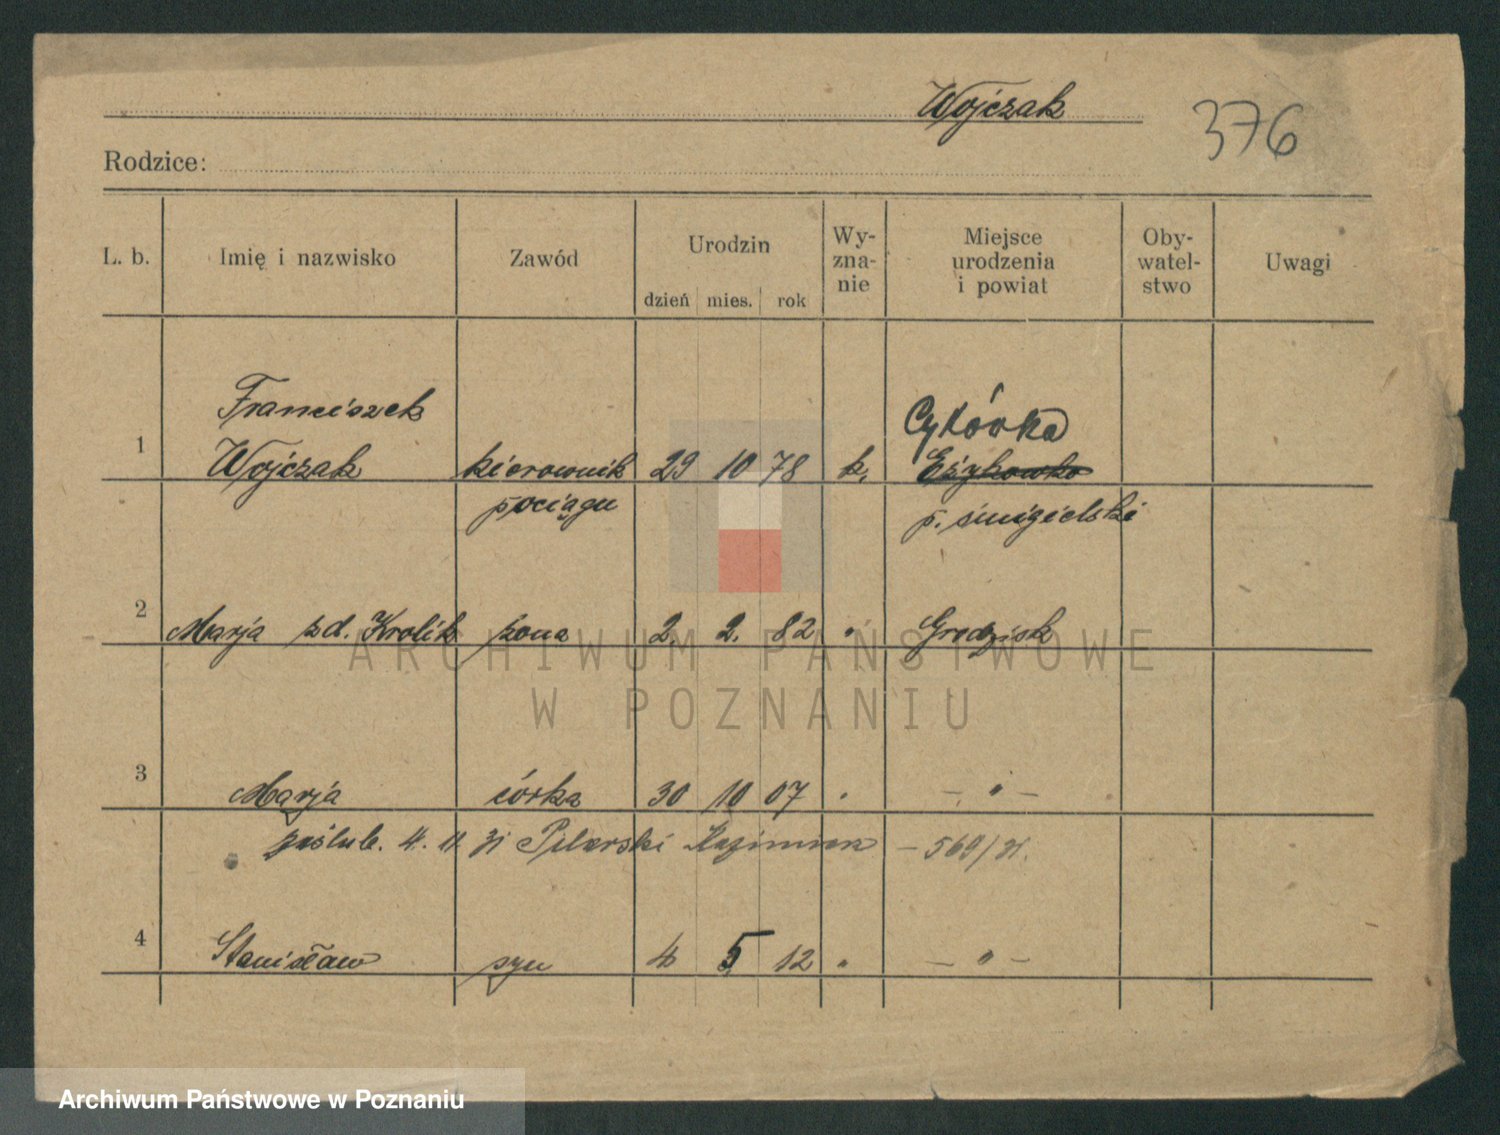 Wojczak
376
Rodzice:
L. b. Imię i nazwisko Zawód Urodzin dzień mies. rok Wy-zna-nie Miejsce urodzenia i powiat Oby-watel-stwo Uwagi
Franciszek Cykówka
1 Wojczak kierownik 29 10 78 k.
pociągu p. śmigielski
2 Marja zd. Krolik żona 2. 2. 82 " Grodzisk
3 Marja córka 30 10 07 " — " —
poślub. 4. 11. 31 Pilarski Kazimierz — 569/31.
4 Stanisław syn 4 5 12 " — " —
ARCHIWUM PAŃSTWOWE
W POZNANIU
Archiwum Państwowe w Poznaniu